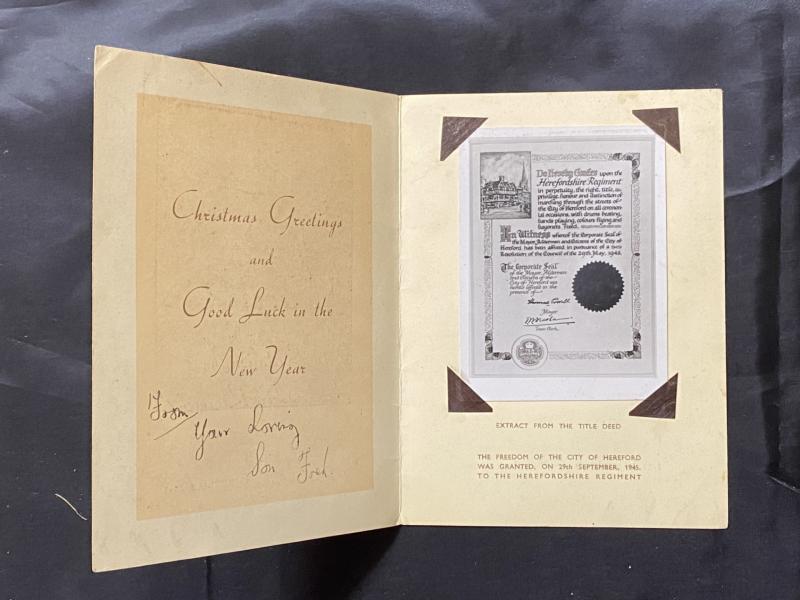 Christmas Greetings
and
Good Luck in the
New Year
From
Your Loving
Son
Do Hereby Confer upon the
Herefordshire Regiment
in perpetuity, the right, title,
privilege, honour and distinction of
marching through the streets of
the City of Hereford on all ceremon-
ial occasions, with drums beating,
bands playing, colours flying and
bayonets fixed.
In Witness whereof the Corporate Seal of
the Mayor, Aldermen and Citizens of the City of
Hereford has been affixed in pursuance of a
Resolution of the Council of the 29th May, 1945.
The Corporate Seal
of the Mayor, Aldermen
and Citizens of the
City of Hereford was
hereto affixed in the
presence of
Mayor
Town Clerk.
EXTRACT FROM THE TITLE DEED
THE FREEDOM OF THE CITY OF HEREFORD
WAS GRANTED, ON 29th SEPTEMBER, 1945,
TO THE HEREFORDSHIRE REGIMENT